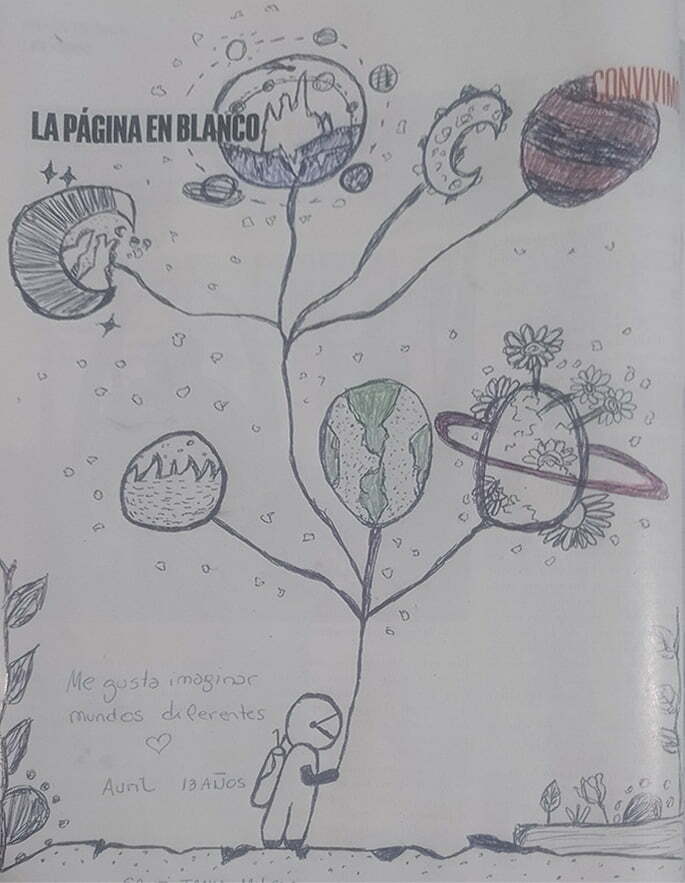 LA PÁGINA EN BLANCO
CONVIVIM
Me gusta imaginar
mundos diferentes
Avril 13 AÑOS